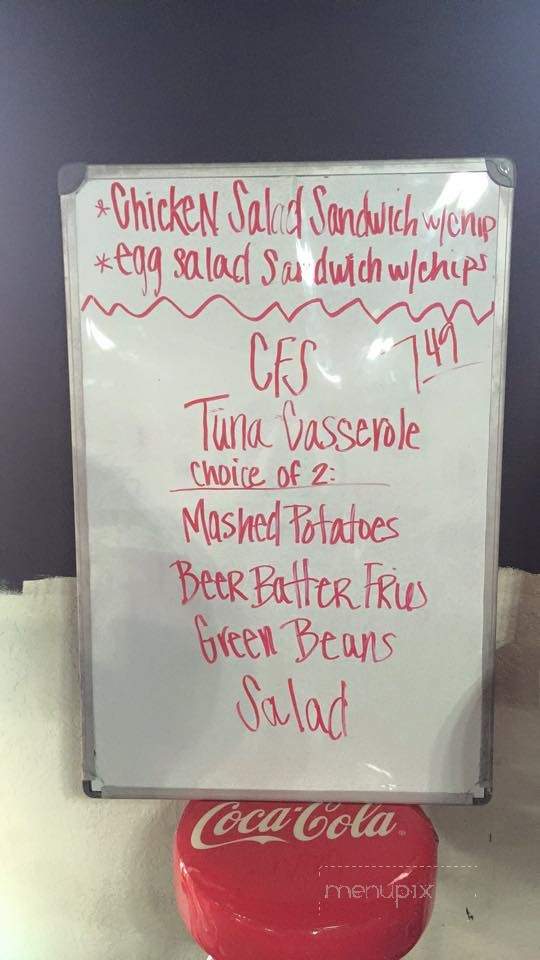 *Chicken Salad Sandwich w/chip
*egg salad Sandwich w/chips
CFS 7.49
Tuna Casserole
Choice of 2:
Mashed Potatoes
Beer Batter Fries
Green Beans
Salad
Coca-Cola
menupix